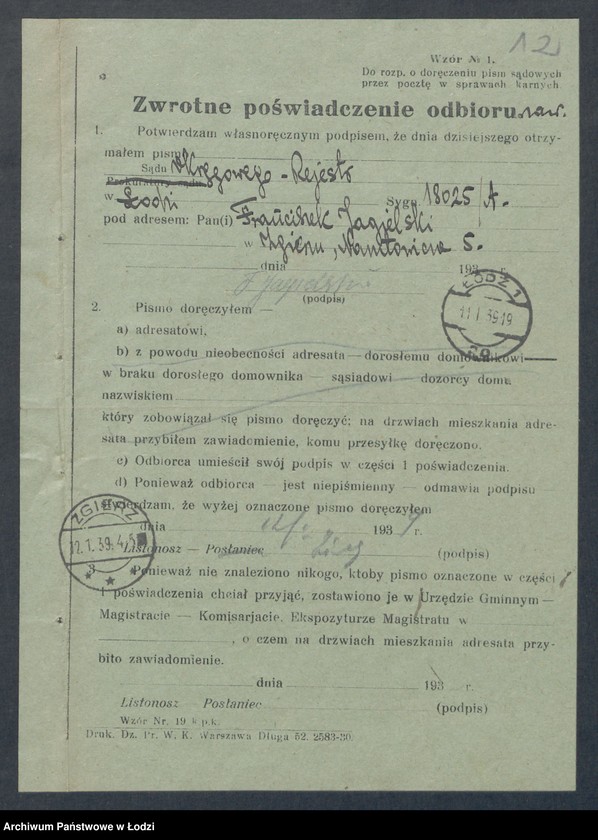 12
Wzór № 1.
Do rozp. o doręczeniu pism sądowych
przez pocztę w sprawach karnych.
Zwrotne poświadczenie odbioru
1. Potwierdzam własnoręcznym podpisem, że dnia dzisiejszego otrzy-
małem pismo
Sądu Okręgowego - Rejestr
Prokuratora sądu
w Łodzi Sygn. 18025/A.
pod adresem: Pan(i) Franciszek Jagielski
w Zgierzu, Narutowicza 5.
dnia 193 r.
F. Jagielski
(podpis)
ŁÓDŹ 1
11.I.39.19
2. Pismo doręczyłem —
a) adresatowi,
b) z powodu nieobecności adresata — dorosłemu domownikowi
w braku dorosłego domownika — sąsiadowi — dozorcy domu
nazwiskiem
który zobowiązał się pismo doręczyć; na drzwiach mieszkania adre-
sata przybiłem zawiadomienie, komu przesyłkę doręczono.
c) Odbiorca umieścił swój podpis w części 1 poświadczenia.
d) Ponieważ odbiorca — jest niepiśmienny — odmawia podpisu
stwierdzam, że wyżej oznaczone pismo doręczyłem
dnia 1939 r.
Listonosz — Posłaniec (podpis)
ZGIERZ
12.1.39.4.5
3. Ponieważ nie znaleziono nikogo, ktoby pismo oznaczone w części
1 poświadczenia chciał przyjąć, zostawiono je w Urzędzie Gminnym —
Magistracie — Komisarjacie, Ekspozyturze Magistratu w
, o czem na drzwiach mieszkania adresata przy-
bito zawiadomienie.
dnia 193 r.
Listonosz Posłaniec (podpis)
Wzór Nr. 19 k.p.k.
Druk. Dz. Pr. W. K. Warszawa Długa 52. 2583-30.
Archiwum Państwowe w Łodzi